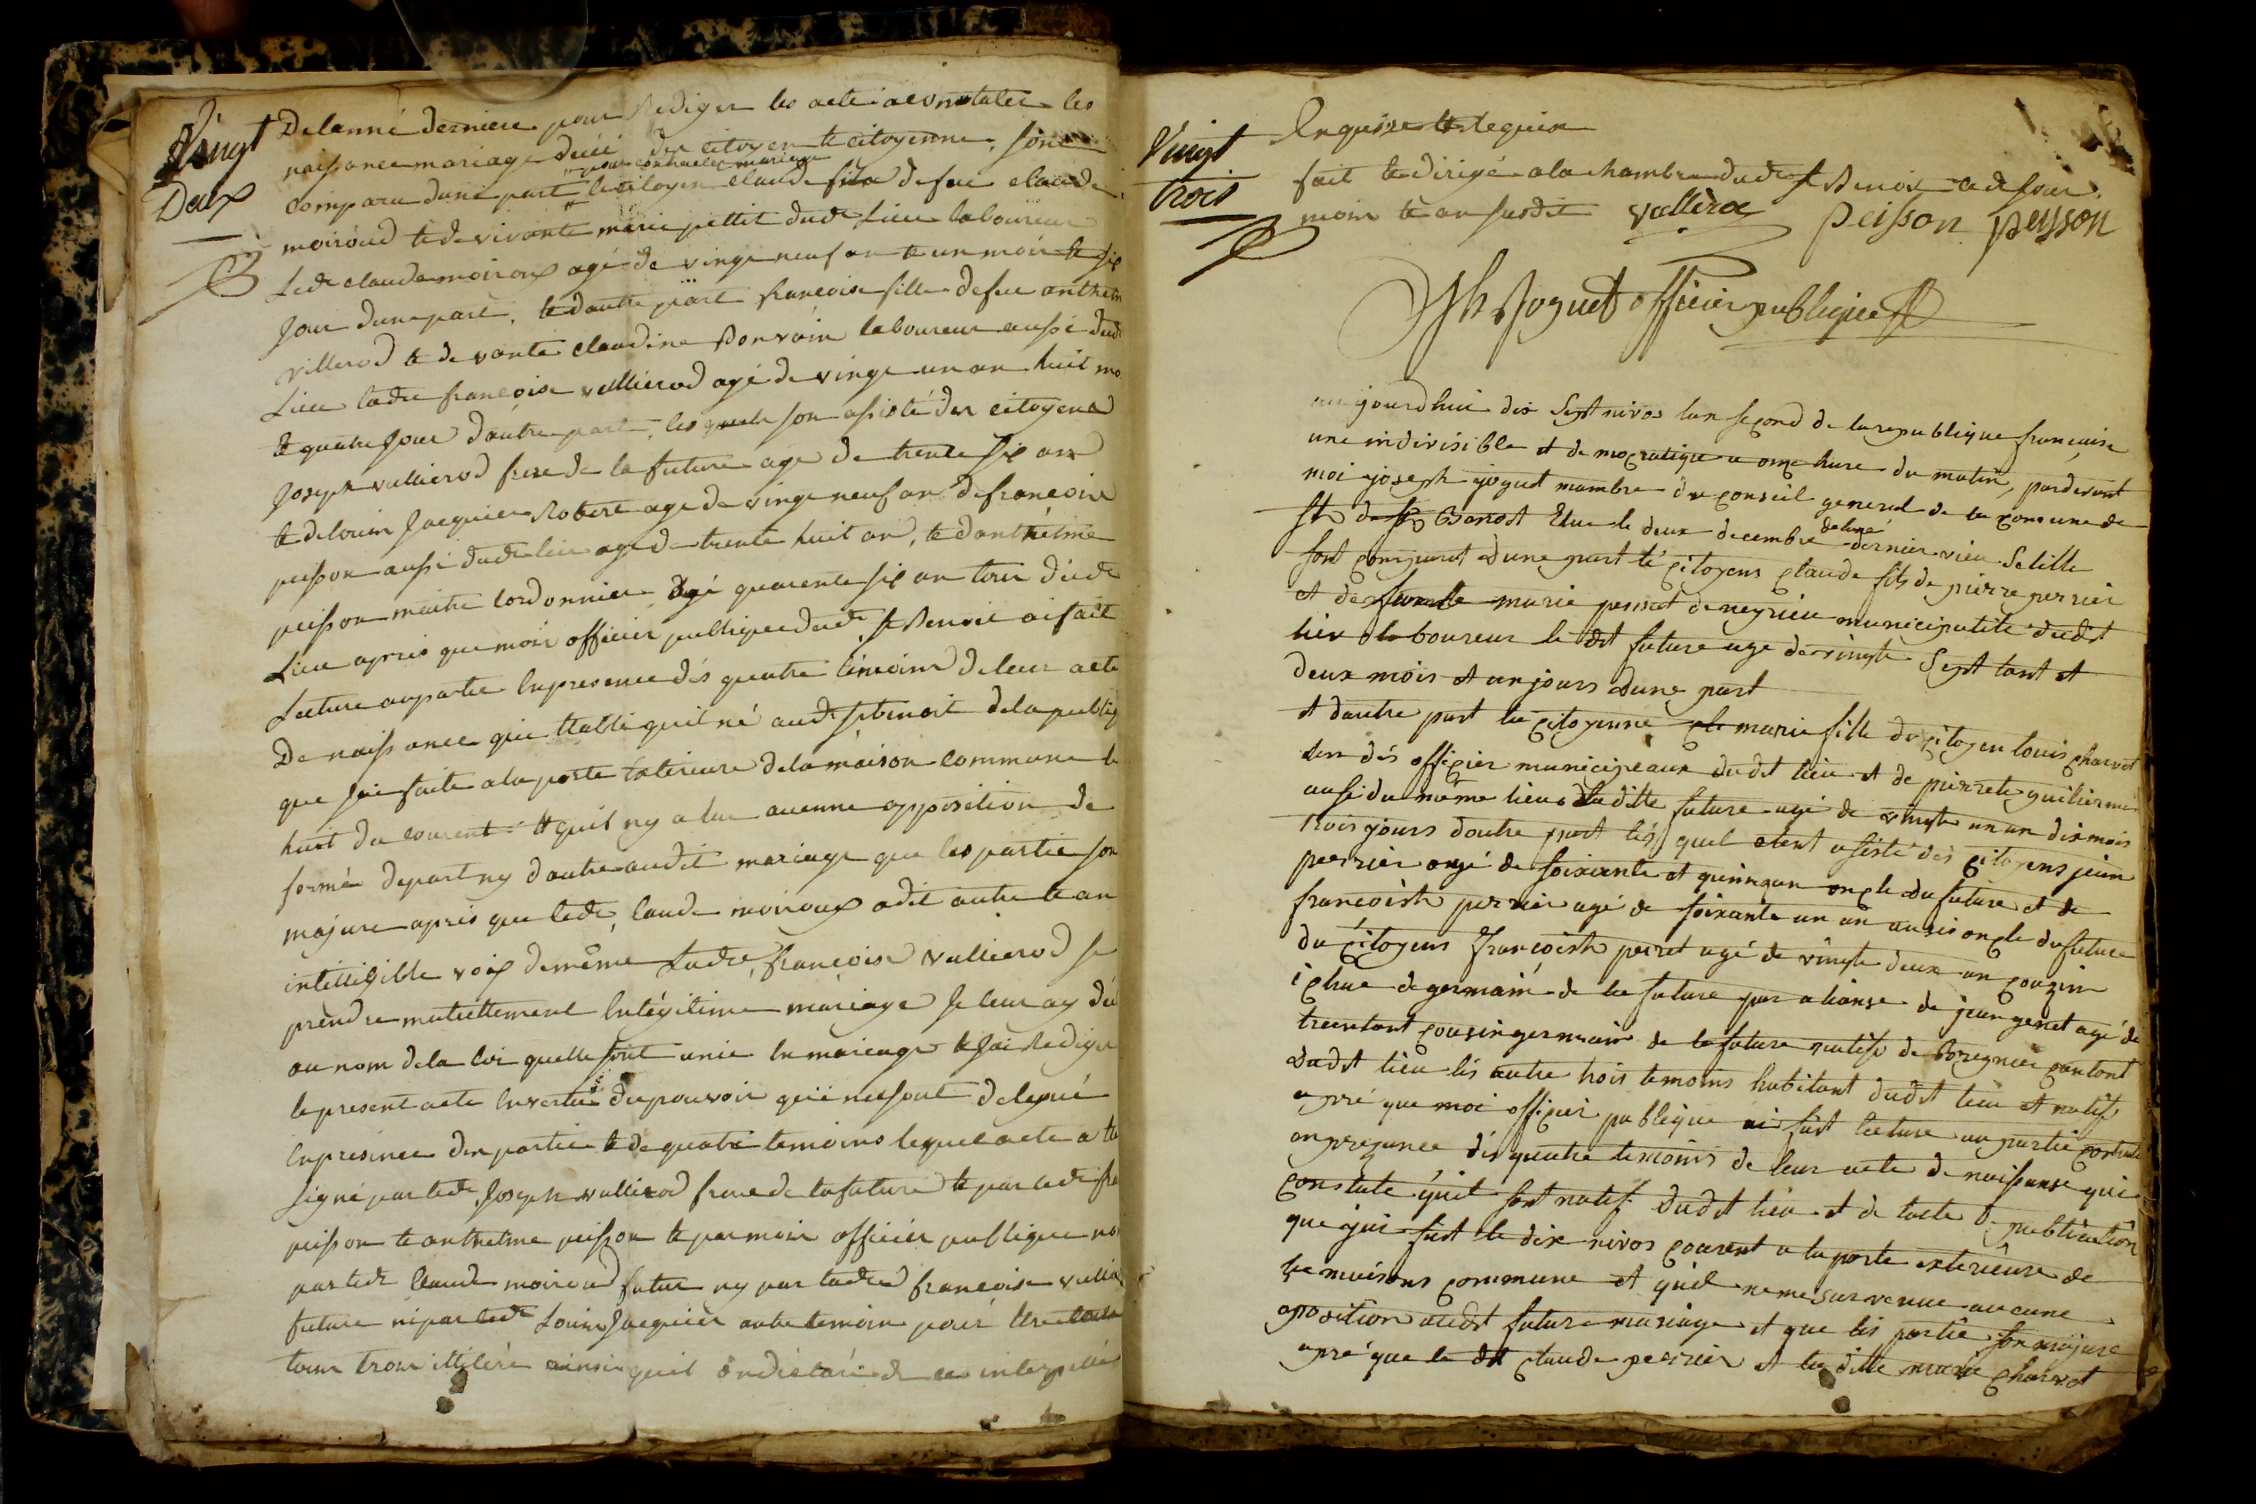 Vingt
Deux
De lanné derniere pour Rediger les acte aconstater les
naissance mariage decé des citoyen te citoyenne, sont
pour contracter mariage
comparu dune part le citoyen claude fils de feu claude
moiroud te de vivante marie pettit dudt lieu laboureur
Ledt claude moiroux agé de vingt neuf an te un mois te six
jour dune part, te dautre part francoise fille de feu anthelme
villerod te de vante claudine Bonvoin laboureur aussi dudt
Lieu ladte francoise vallierod agé de vingt un an huit mo
te quatre jour dautre part, les quels son assisté des citoyens
Joseph vallierod frere de la future age de trente six ans
te de louis Jacquier Robert age de vingt neuf an de francois
peisson aussi dudt lieu age de trente huit an, te danthelme
peisson maitre cordonnier agé quarente six an tous dudt
Lieu apres que moir officier publique dudt St Benoit ai fait
Lecture au partie En presence dés quatre témoins de leur acte
De naissance qui établi quil né audt St benoit de la public
que jai faite a la porte exterieure de la maison commune le
huit du courent te quil ny a lue aucunne opposition de
formée depart ny dautre audit mariage que les partie son
majure apres que ledt claude moiroux a dit autre te an
intélligible voix de même Ladte francoise vallierod se
prendre mutuéllement En légitime mariage Je leur ay dé
au nom de la loi quelle sont unie En mariage te Jai Rediger
le present acte En vertu du pouvoir qui me sont delegué
En presence des partie te de quatre temoins lequel acte a té
signé par ledt Joseph vallierod frere de la future te par ledt fra
peisson te anthelme peisson te par moir officier publique no
par ledt claude moiroud futur ny par ladte francoise vallie
future ni par ledt Louis Jacquier autre temoin pour être
tous trois illiteré ainsi quil on déclaré de ce interpellé
Vingt
trois
Enquise te Requis
fait te dirigé a la chambre dudt St Benoit ce dt jour
mois te an susdit vallierod peisson peysson
Jh Joguet officier publique
aujourdhui dix Sept nivos lan second de la republique francaise
une indivisible et democratique a onze hure du matin, pardevant
moi joseph joguet mambre du conseil general de la comune de
St Benoit Elue le deux decembre dernier vieu Setille
de lané
sont comparut dune part le citoyens claude fils de pierre perrier
et de marie pernet de neyrieu municipalité dudt
lieu laboureur le dt future age de vingte Sept tant et
deux mois et un jours dune part
et dautre part la citoyenne marie fille du citoyen louis charvet
lun dés officier municipeaux dudt lieu et de pierrete guilierme
ausi du même lieu ladite future agé de vingte un an dix mois
trois jours dautre part lés quel etent asisté dés citoyens jean
perrier agé de soixante et quinzan oncle du future et de
francoish perrier agé de soixante un an ausi oncle du future
du citoyens francoish peiret agé de vingte deux an couzin
ichue de germain de la future par alianse de jean genet agé de
trentant cousin germain de la future natife de Boregnier contant
dudt lieu lés autre trois temoins habitant dudt lieu et natif
apré que moi officier publique ai fait lecture au partie
on prezance dés quatre temoins de leur acte de naissanse qui
constate quil sont natif dudt lieu et de lacte de publication
que jai fait le dix nivos courent a la porte exterieure de
la maisons commune et quil ne me survenue aucune
oposition audt future mariage et que lés partie son majure
apré que le dt claude perrier et la ditte marie charvet